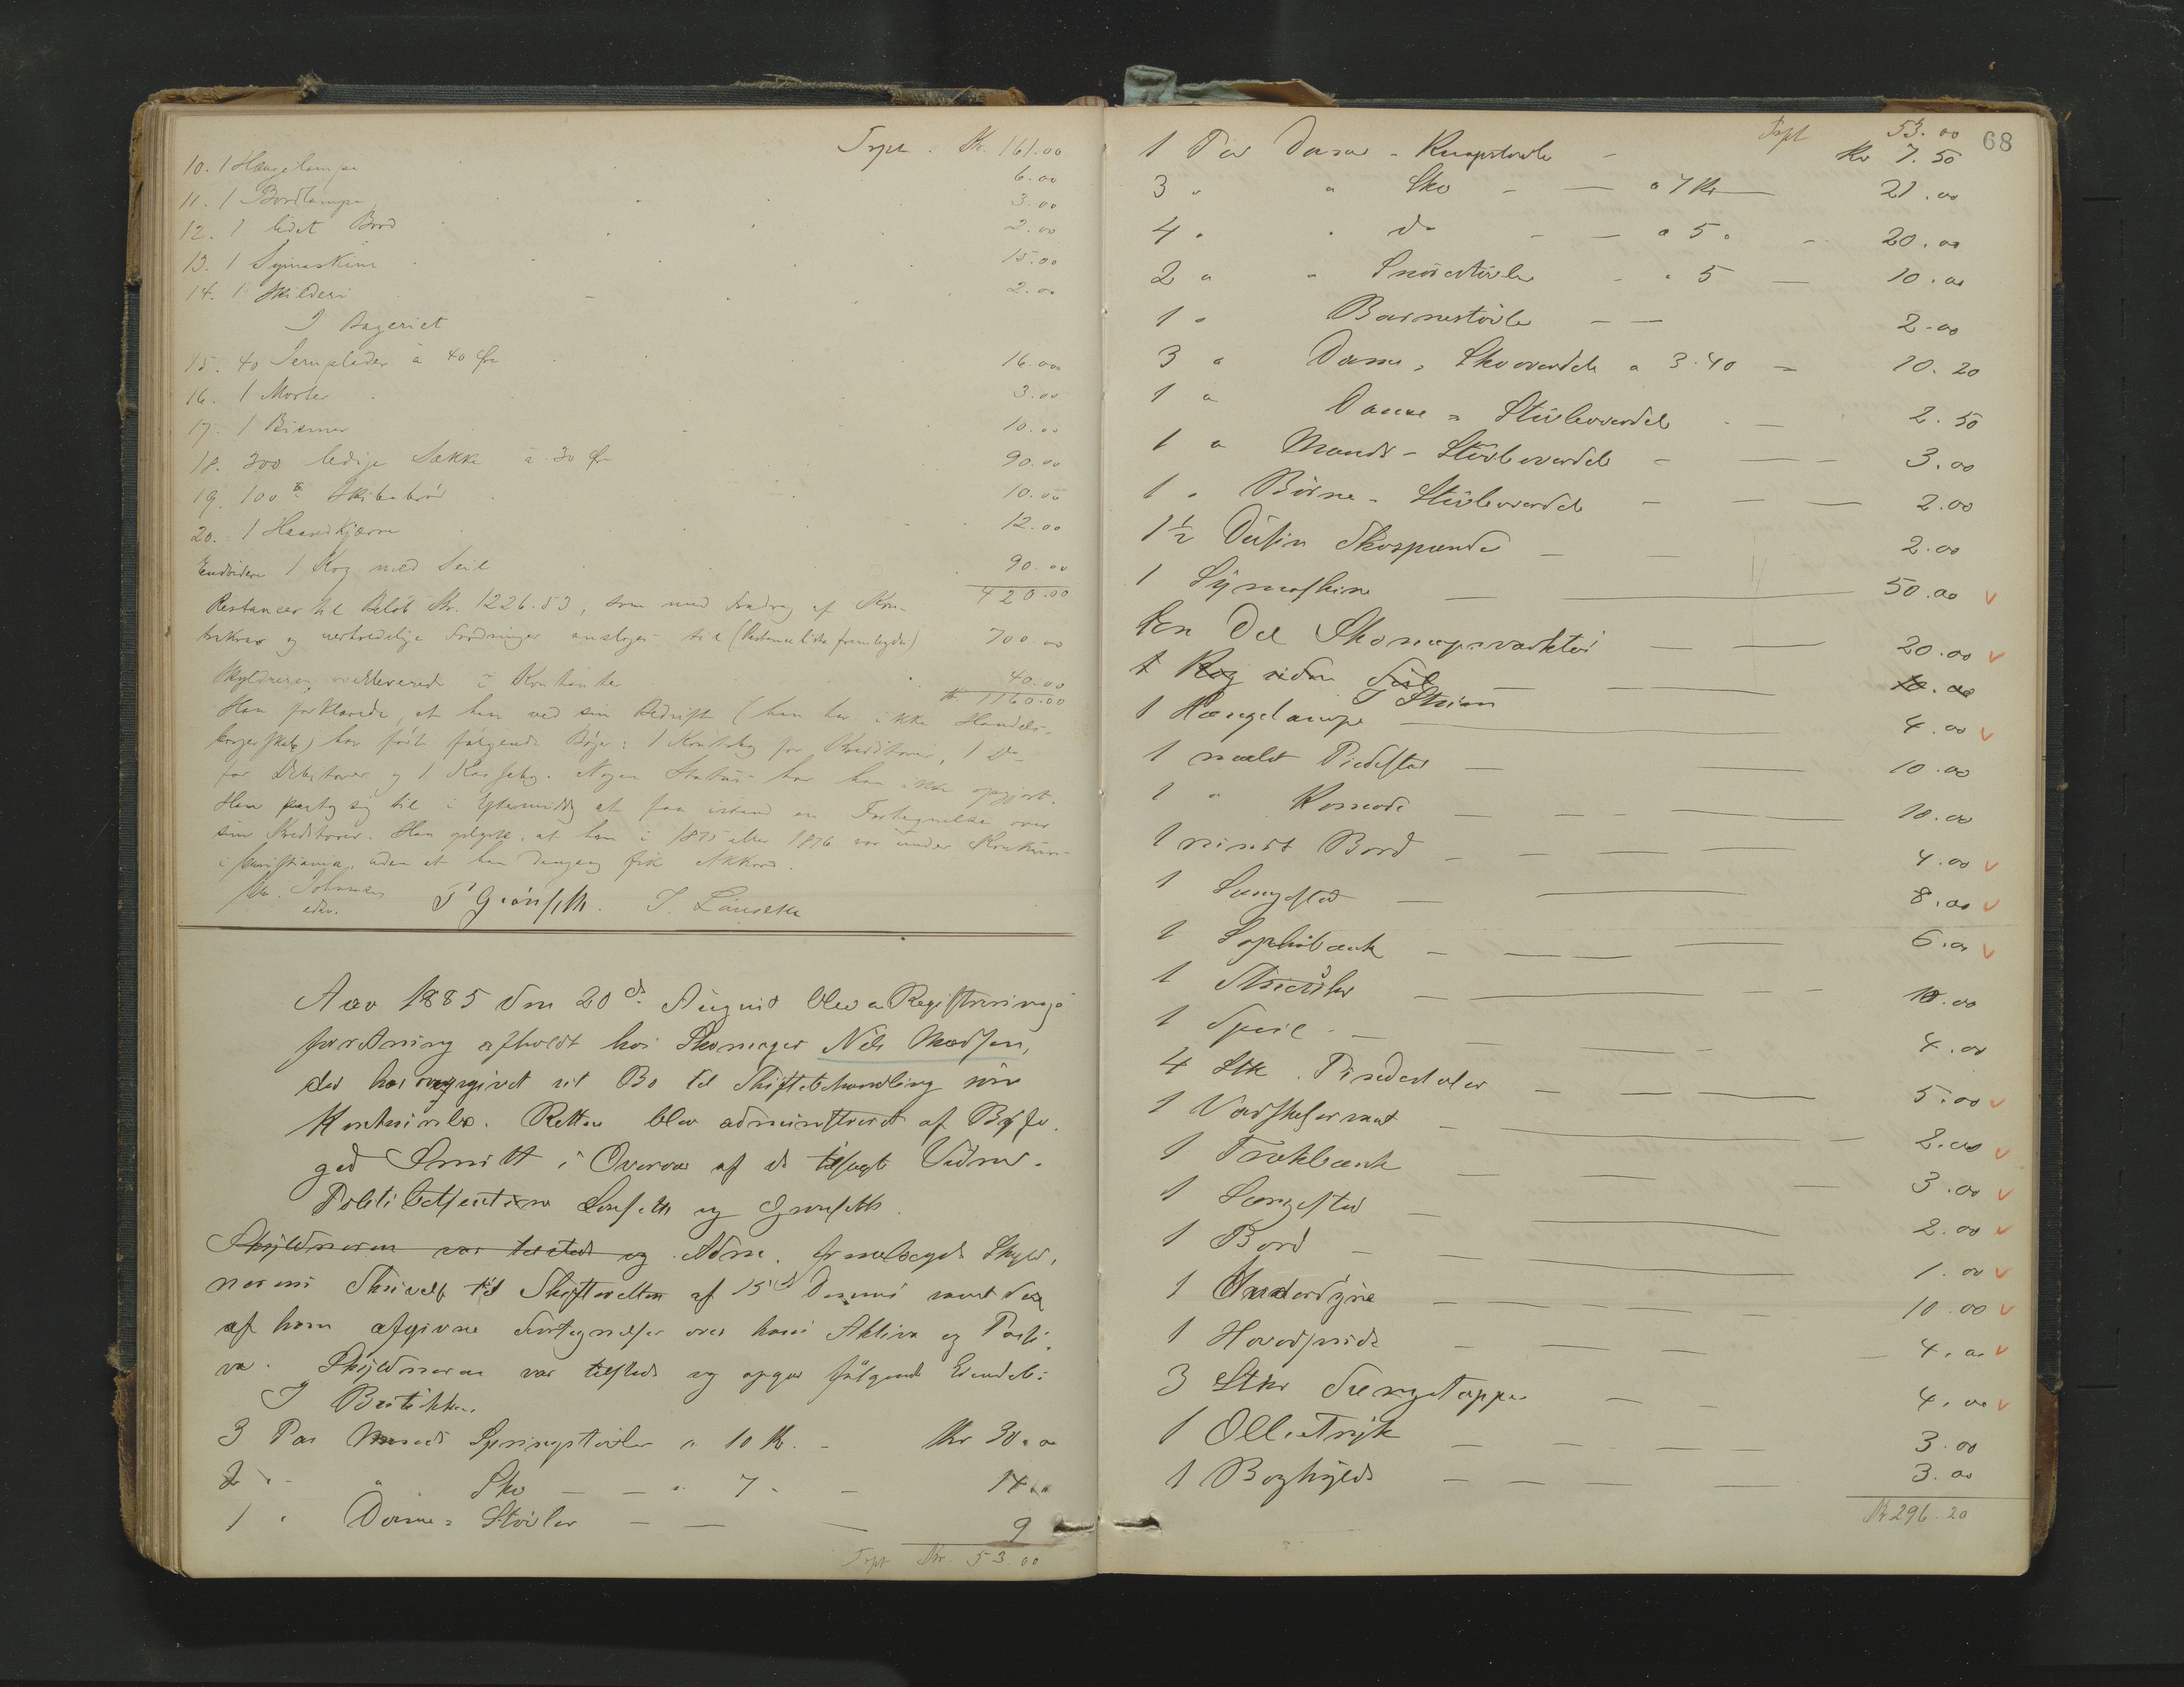 Trpt. Kr. 161.00
10. 1 Hængelampe 6.00
11. 1 Bordlampe 3.00
12. 1 lidet Bord 2.00
13. 1 Symaskine 15.00
14. 1 Skilderi 2.00
I Bageriet
15. 40 Jernplader à 40 Øre 16.00
16. 1 Morter 3.00
17. 1 Bismer 10.00
18. 300 ledige Sække à 30 Øre 90.00
19. 100 Skibsbrød 10.00
20. 1 Haandkjærre 12.00
Endvidere 1 Kog med Seil 90.00
420.00
Restancer til Beløb Kr. 1226.53, som med Fradrag af Kon-
trakrav og uerholdelige Fordringer ansloges til 700.00
Skyldneren overleverede i Kontanter 40.00
Kr. 1160.00
Han forklarede, at han ved sin Bedrift (han har ikke Handels-
borgerskab) har ført følgende Bøger: 1 Kontobog for Kreditorer, 1 Do
for Debitorer og 1 Kassebog. Nogen Status har han ikke opgjort.
Han paatog sig til i Eftermiddag at faa istand en Fortegnelse over
sine Kreditorer. Han oplyste, at han i 1875 eller 1876 var under Konkurs
i Kristiania, uden at han dengang fik Akkord.
Johnsen edsv. Grönseth. J. Lönseth
Aar 1885 den 20de August blev en Registrerings
forretning afholdt hos Skomager Nils Madsen,
der har opgivet sit Bo til Skiftebehandling som
Konkursbo. Retten blev administreret af Byfo-
ged Smitt i Overvær af de tilsagte Vidner
Politibetjentene Lönseth og Grönseth.
Skyldneren var tilstede og Adm. fremlagde Skyld-
nerens Skrivelse til Skifteretten af 15de Dennes samt de
af ham afgivne Fortegnelser over hans Aktiva og Passi-
va. Skyldneren var tilstede og opgav følgende Eiendele:
I Butikken
3 Par Mands Springstøvler a 10 Kr. - Kr 30.00
2 " " Sko - - " 7 " - 14.00
1 " Dame-Støvler - - - 9
Trpt Kr. 53.00
68
Trpt 53.00
1 Par Dame-Knapstøvle - Kr 7.50
3 " " Sko - - a 7 Kr 21.00
4 " " do - - a 5 " - 20.00
2 " " Snørestøvler - " 5 - 10.00
1 " Barnestøvle - - 2.00
3 " Dame-Skooverdele a 3.40 - 10.20
1 " Dame-Støvleoverdel - - 2.50
1 " Mands-Støvleoverdele - - 3.00
1 " Børne-Støvleoverdele - - - 2.00
1½ Dusin Skospænde - - 2.00
1 Symaskine - - 50.00
En Del Skomagerværktøi - - 20.00
1 Kog uden Seil - - 10.00
I Stuen
1 Hængelampe - 4.00
1 malt Piedestal - - 10.00
1 " Komode - - - 10.00
1 rundt Bord - - - 4.00
1 Sengested - - 8.00
1 Sophabænk - - - 6.00
1 - - - 10.00
1 Speil - - - 4.00
4 Stk. Pindestoler - - - 5.00
1 Vaskeservant - - - 2.00
1 Trækbænk - - - 3.00
1 Sengested - - 2.00
1 Bord - - 1.00
1 Underdyne - - - 10.00
1 Hovedpude - - - 4.00
3 Stkr Sengetæpper - - 4.00
1 Olietryk - - - 3.00
1 Boghylde - - - 3.00
Kr 296.20